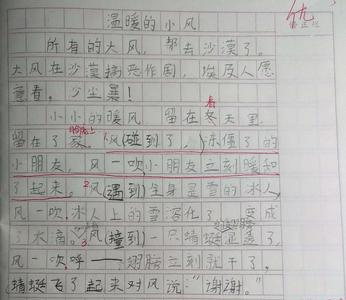 温暖的小风
优
所有的大风，都去沙漠了。
大风在沙漠搞恶作剧，埃及人愿
意看。少尘暴！
小小的暖风，留在冬天里
留在了家。风(碰到了，)冻僵了的
小朋友，风一吹小朋友立刻暖和
了起来。风(遇到)全身是雪的冰人
风一吹，冰人上的雪
了水滴。风(撞到)一只蜻蜓
风一吹呼——翅膀立刻就干了，
蜻蜓飞了起来对风说："谢谢。"